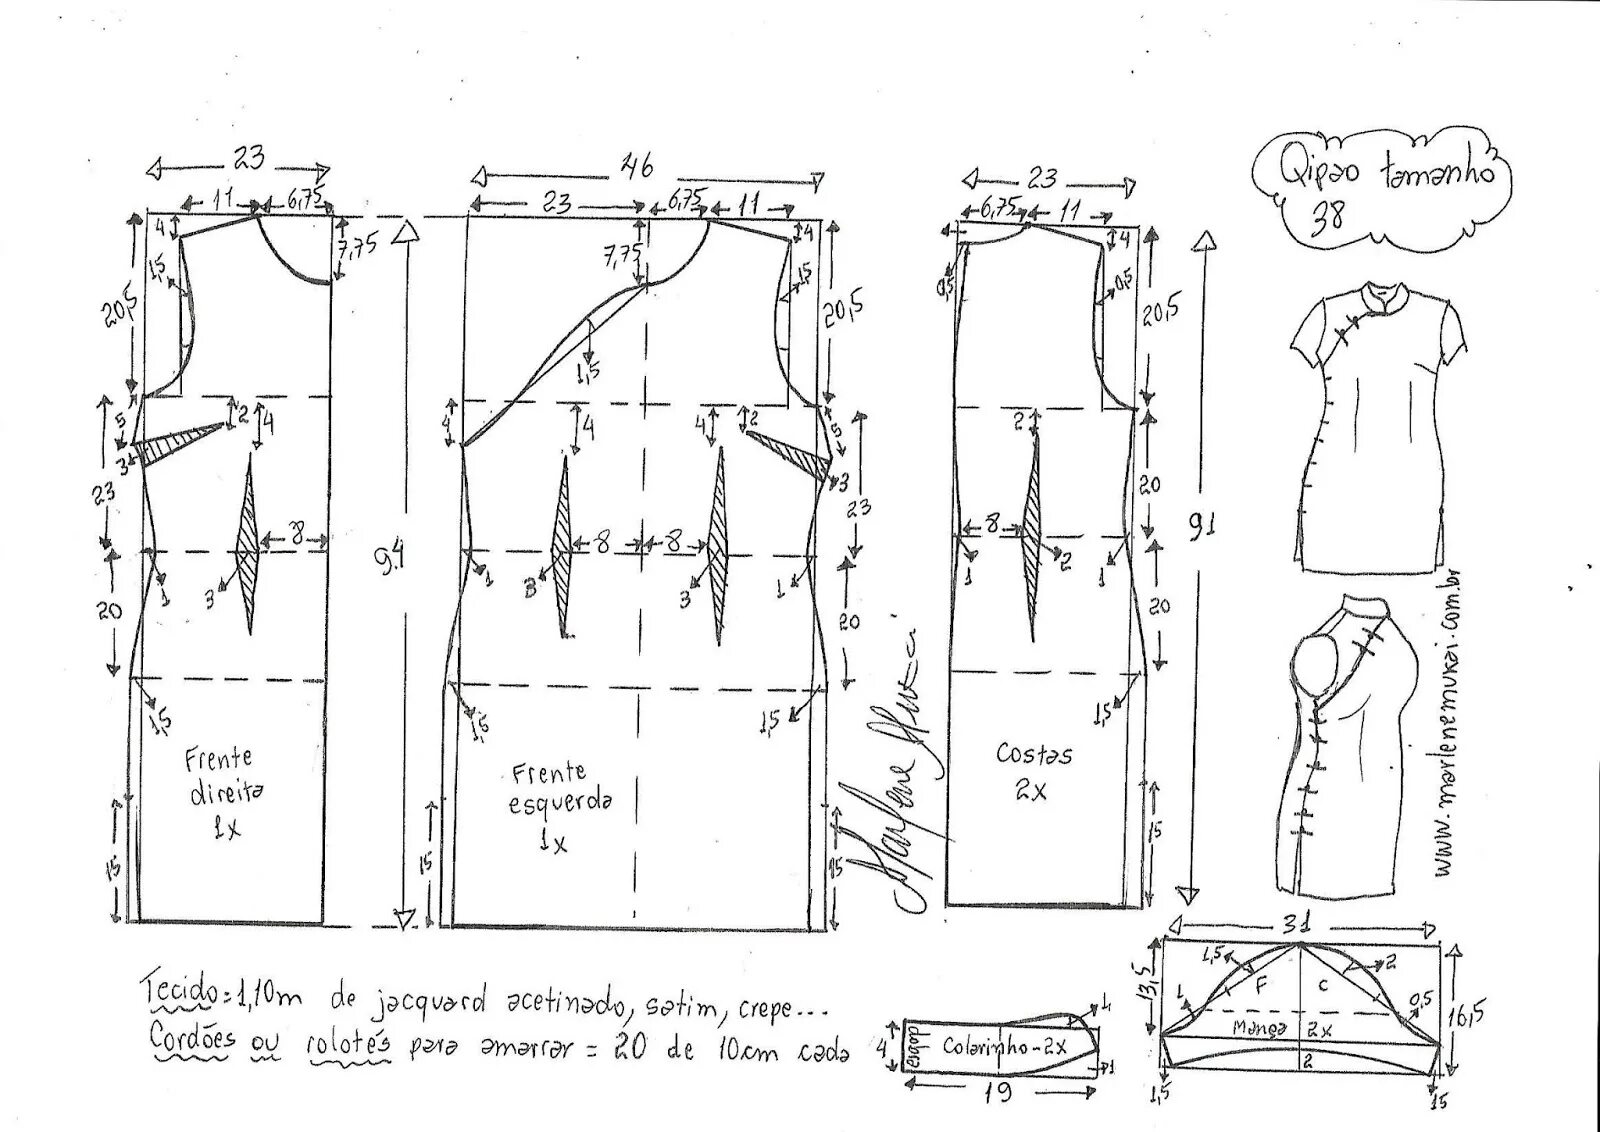 Qipao tamanho
38
23
11
6,75
4
7,75
1,5
20,5
5
2
4
3
23
8
1
3
20
1,5
Frente
direita
1x
15
94
46
23
6,75
11
7,75
4
1,5
1,5
20,5
4
4
4
2
5
3
23
8
8
1
3
3
1
20
1,5
1,5
Frente
esquerda
1x
15
15
23
6,75
11
4
0,5
0,5
20,5
2
20
8
1
2
1
20
1,5
Costas
2x
15
91
Marlene Mukai
www.marlenemukai.com.br
Tecido=1,10m de jacquard acetinado, satim, crepe...
Cordões ou rolotés para amarrar = 20 de 10cm cada
4
dobra
Colarinho-2x
1
1
19
31
13,5
1,5
F
C
2
1
0,5
16,5
Manga 2x
2
1,5
15